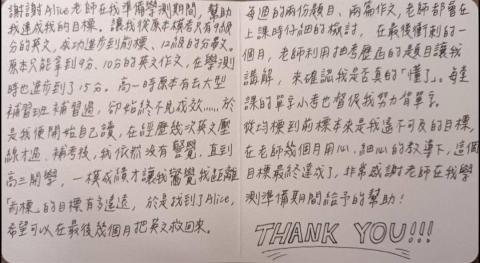 謝謝Alice老師在我準備學測期間，幫助
我達成我的目標。讓我從原本模考只有9級分
的英文，成功進步到前標、12級的分英文。
原本只能拿到9分、10分的英文作文，在學測
時也進步到了15分。高一時原本有去大型
補習班補習過，卻始終不見成效......於
是我便開始自己讀，在經歷幾次英文壓
線才過、補考後，我依然沒有警覺，直到
高三開學，一模成績才讓我驚覺我距離
「前標」的目標有多遙遠，於是找到了Alice,
希望可以在最後幾個月把英文救回來。
每週的兩份題目、兩篇作文，老師都會在
上課時仔細的檢討，在最後衝刺的一
個月，老師利用把考歷屆的題目讓我
講解，來確認我是否真的「懂了」。每堂
課的單字小考也督促我努力背單字。
從均標到前標本來是我遙不可及的目標，
在老師幾個月用心、細心的教導下，這個
目標最終達成了，非常感謝老師在我學
測準備期間給予的幫助！
THANK YOU!!!